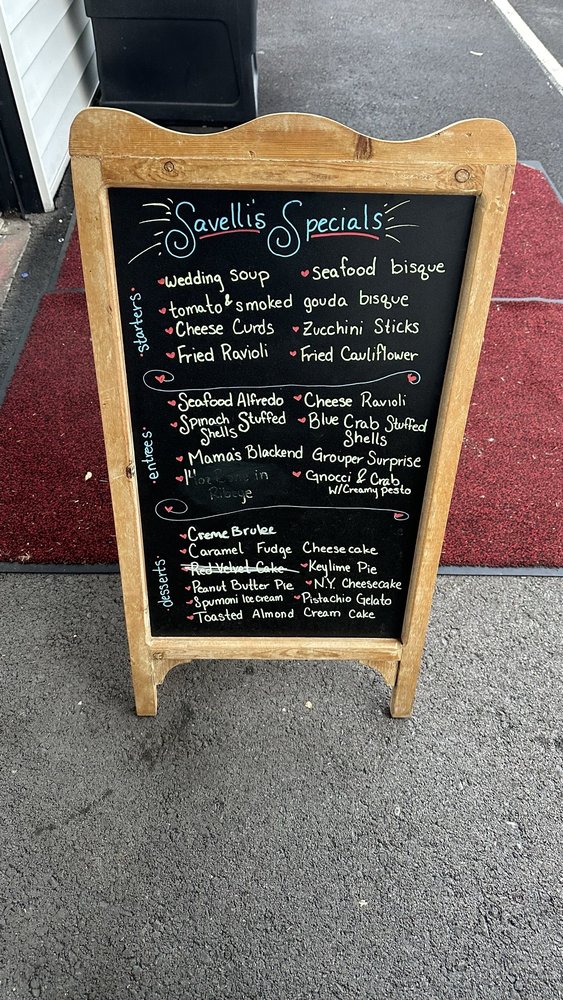 Savelli's Specials
starters
wedding soup seafood bisque
tomato & smoked gouda bisque
Cheese Curds Zucchini Sticks
Fried Ravioli Fried Cauliflower
entrees
Seafood Alfredo Cheese Ravioli
Spinach Stuffed Shells Blue Crab Stuffed Shells
Mama's Blackend Grouper Surprise
Bone in Ribeye Gnocci & Crab w/Creamy pesto
desserts
Creme Brulee
Caramel Fudge Cheesecake
Red Velvet Cake Keylime Pie
Peanut Butter Pie N.Y. Cheesecake
Spumoni Ice cream Pistachio Gelato
Toasted Almond Cream Cake